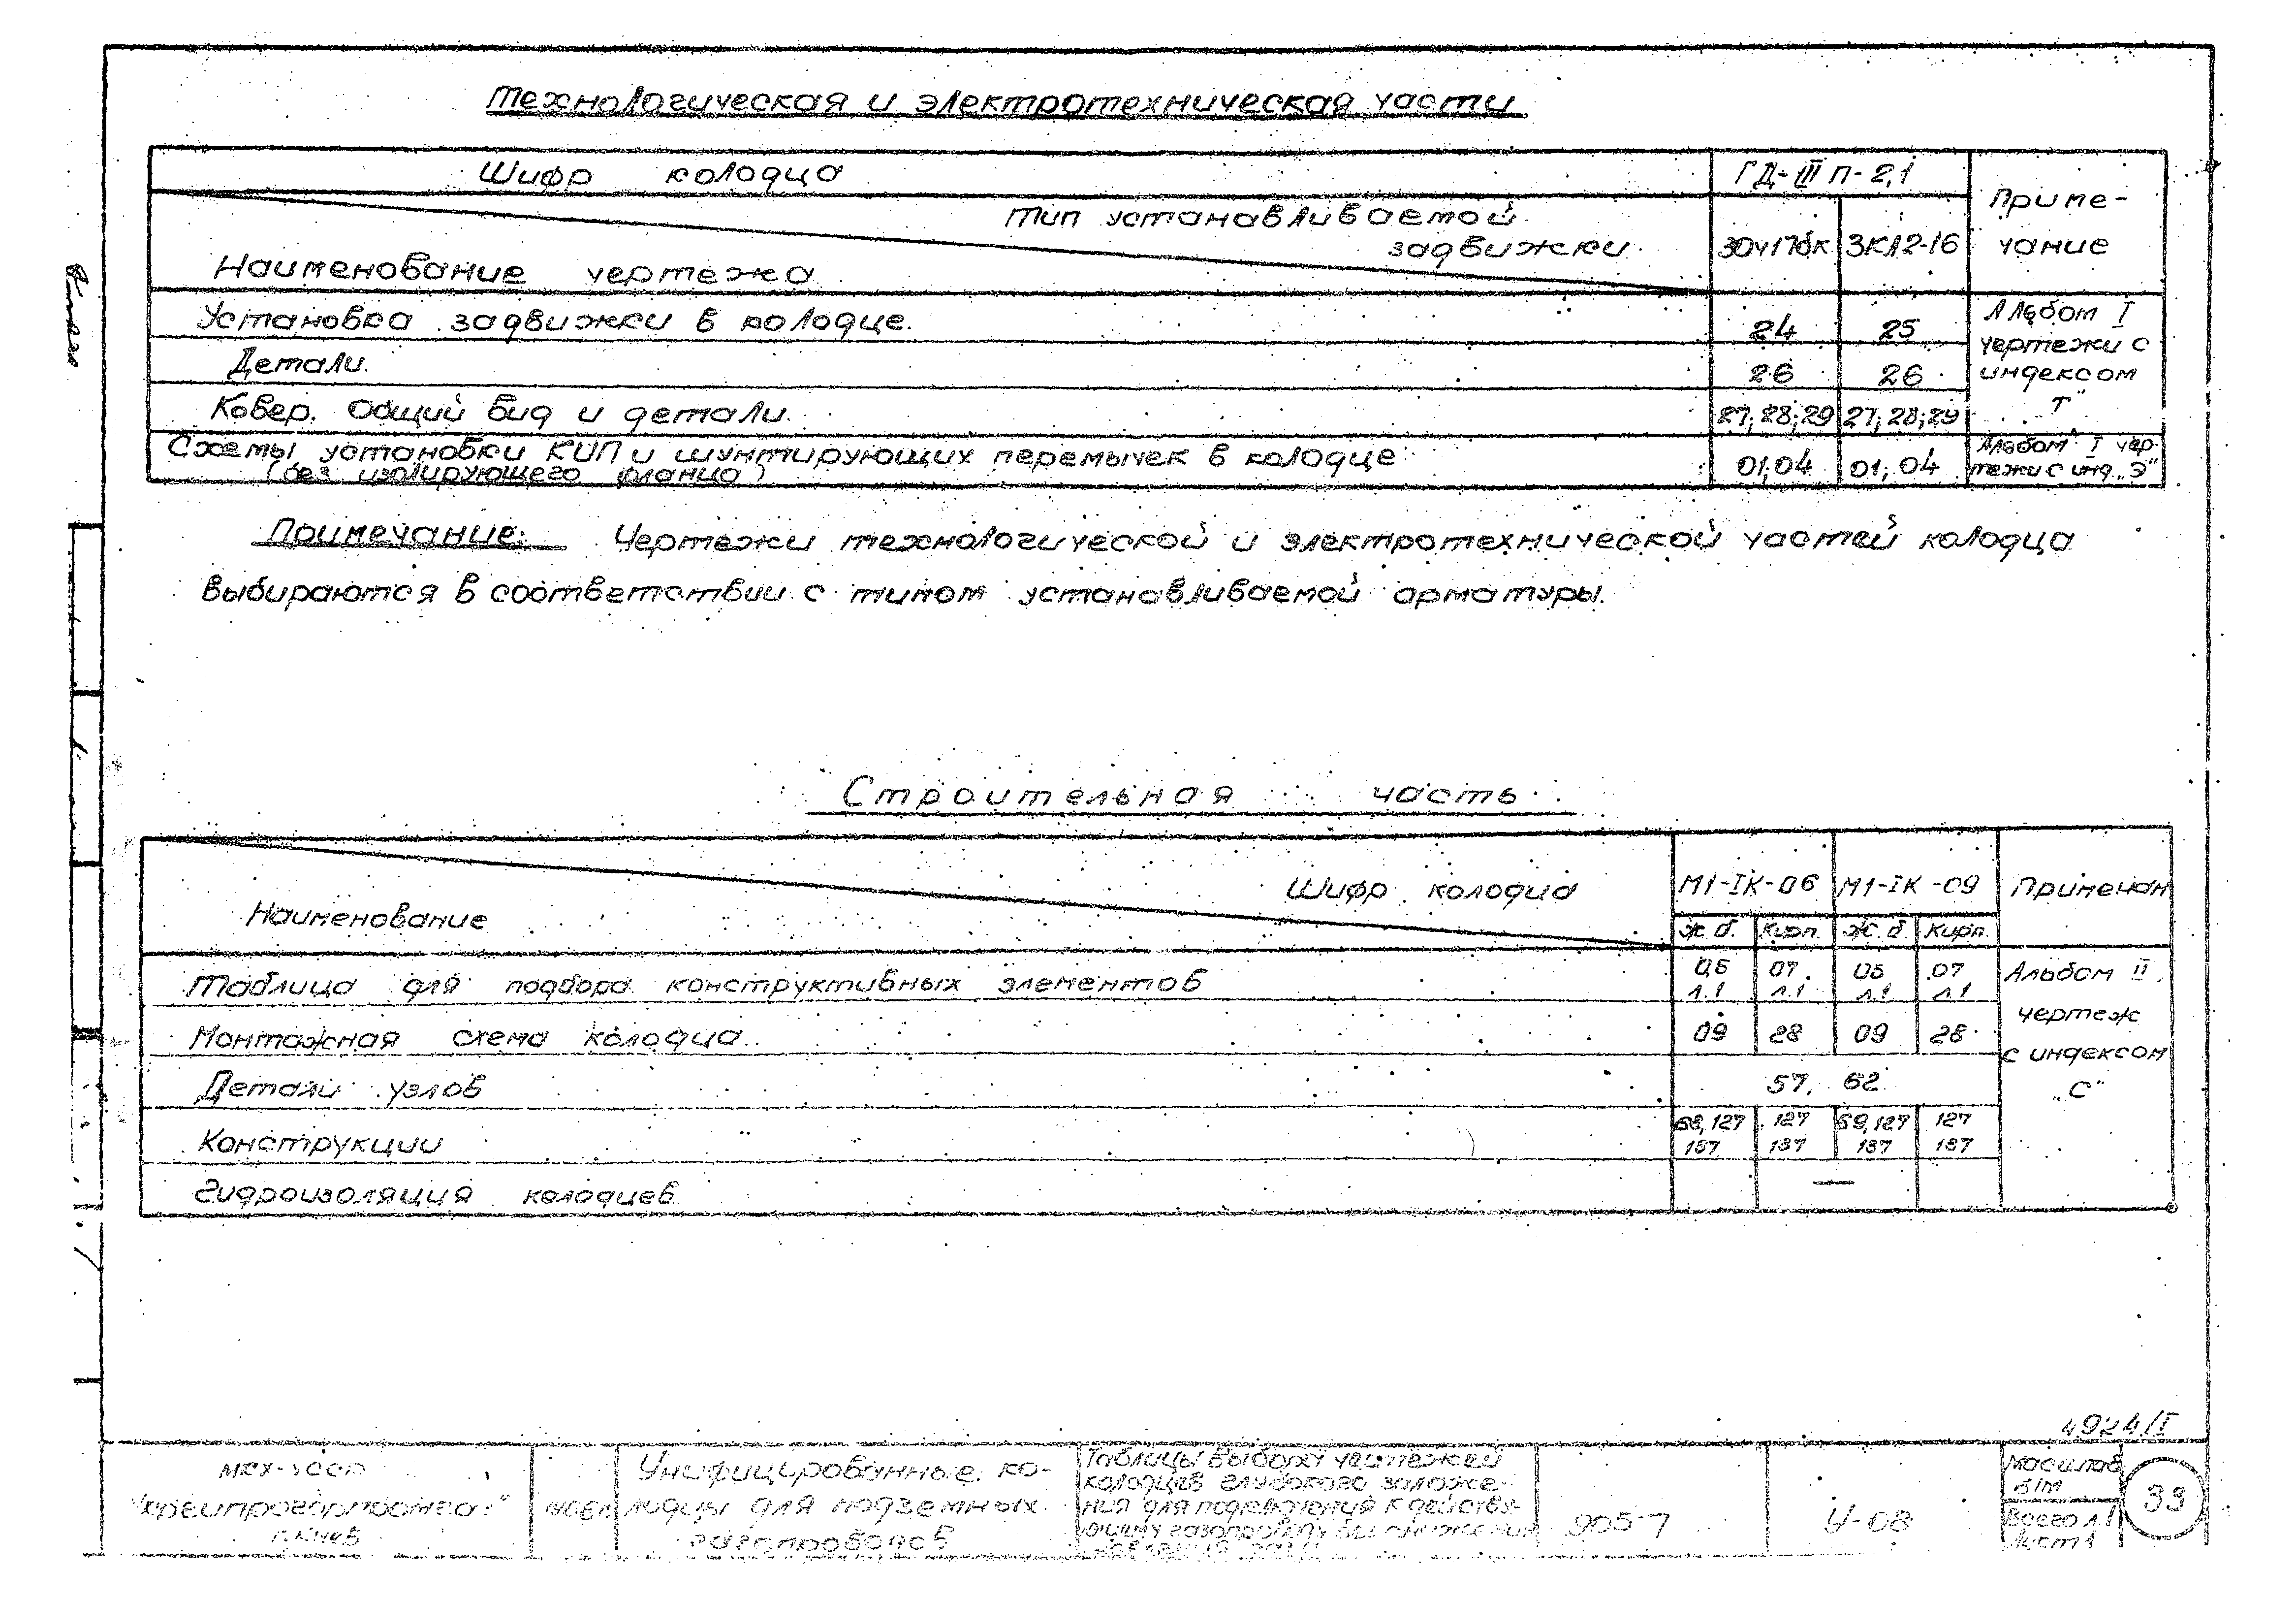 Технологическая и электротехническая части
Шифр колодца
ГД-III П-2,1
Приме-
чание
Тип устанавливаемой
задвижки
Наименование чертежа
30ч17бк
ЗКЛ2-16
Установка задвижки в колодце.
24
25
Альбом I
чертежи с
индексом
„Т"
Детали.
26
26
Ковер. Общий вид и детали.
27; 28; 29
27; 28; 29
Схемы установки КИП и шунтирующих перемычек в колодце
(без изолирующего фланца)
01; 04
01; 04
Альбом I чер-
тежи с инд. „Э"
Примечание: Чертежи технологической и электротехнической частей колодца
выбираются в соответствии с типом устанавливаемой арматуры.
Строительная часть
Шифр колодца
Наименование
М1-IК-06
М1-IК-09
Примечан
ж.б.
Кирп.
ж.б.
Кирп.
Таблица для подбора конструктивных элементов
07
07
л.1
л.1
л.1
л.1
Альбом II
чертеж
с индексом
„С"
Монтажная схема колодца
09
28
09
28
Детали узлов
57, 62
Конструкции
68, 127
127
69, 127
127
187
187
187
187
Гидроизоляция колодцев
—
4924/I
МКХ-УССР
г. Киев
Унифицированные ко-
лодцы для подземных
газопроводов
Таблицы выбора чертежей
колодцев глубокого заложе-
ния для подключения к действу-
ющему газопроводу без снижения
905-7
У-08
Масштаб
б/м
Всего л.1
Лист 1
33